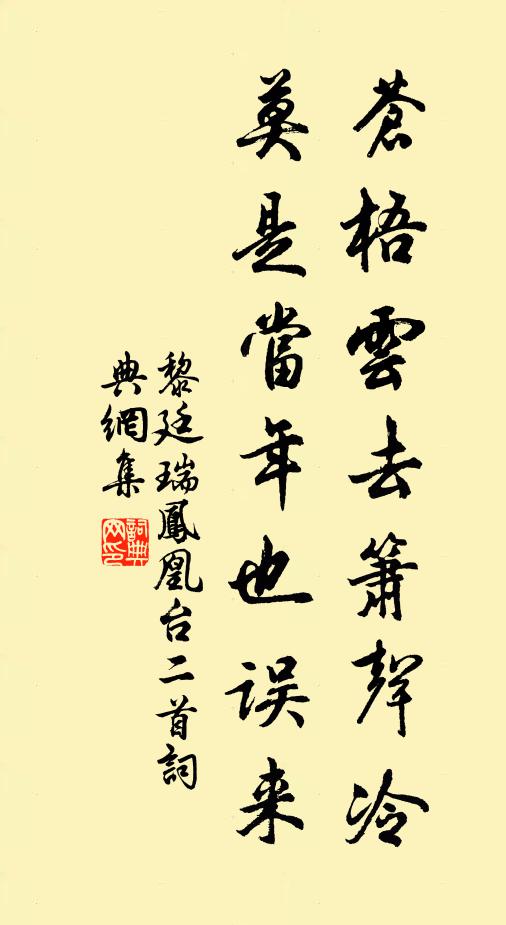 蒼梧雲去簫聲冷
莫是當年也误来
黎廷瑞鳳凰台二首詞
典網集
詞典网印